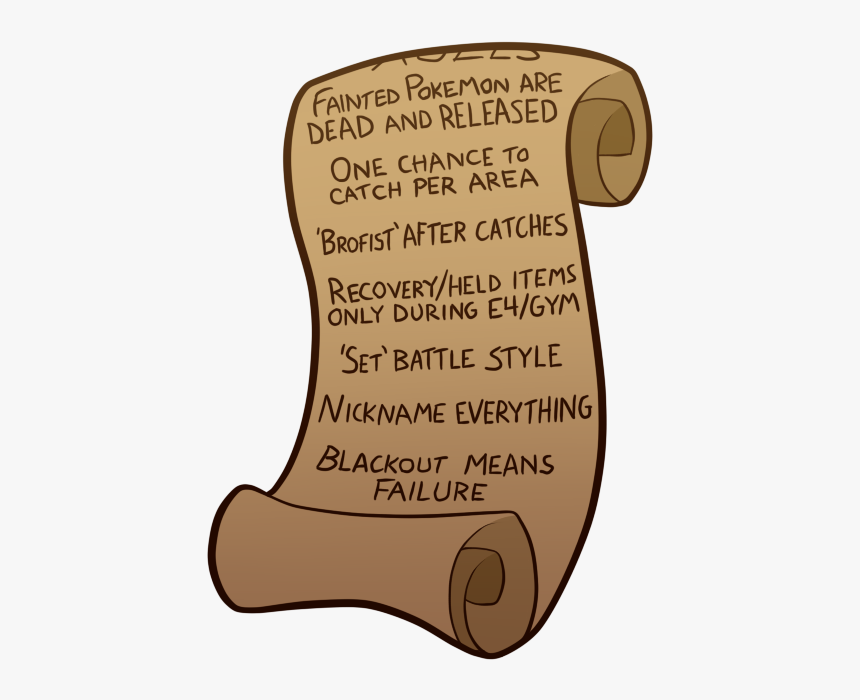 Fainted Pokemon are
dead and released
One chance to
catch per area
'Brofist' after catches
Recovery/held items
only during E4/Gym
'Set' battle style
Nickname everything
Blackout means
failure